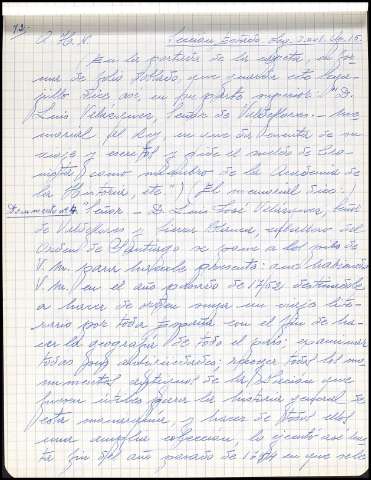 12.-
A. H. N. Sección Estado, Leg.
(En la portada de la carpeta, en for
ma de folio doblado, que guarda este lega
jillo dice así, en su parte superior: "D.
Luis Velázquez, Señor de Valdeflores.-
memorial al Rey, en que da cuenta de su
viaje y escritos y pide el sueldo de
(como miembro de la Academia de
la Historia, etc") (El memorial dice:)
Documento nº "Señor - D. Luis José Velázquez, Señor
de Valdeflores y Sierra Blanca, caballero del
Orden de Santiago se pone a los pies de
V. M. para hacerle presente: que habiendo
V. M. en el año pasado de 1752
a hacer de orden suya un viaje lite-
rario por toda España con el fin de ha-
cer la geografía de todo el país; examinar
todas sus antigüedades; recoger todos los mo-
numentos antiguos de la nación que
fuesen útiles para la historia general de
esta monarquía, y hacer de todos ellos
una amplia colección, lo ejecutó así has-
ta fin del año pasado de en que